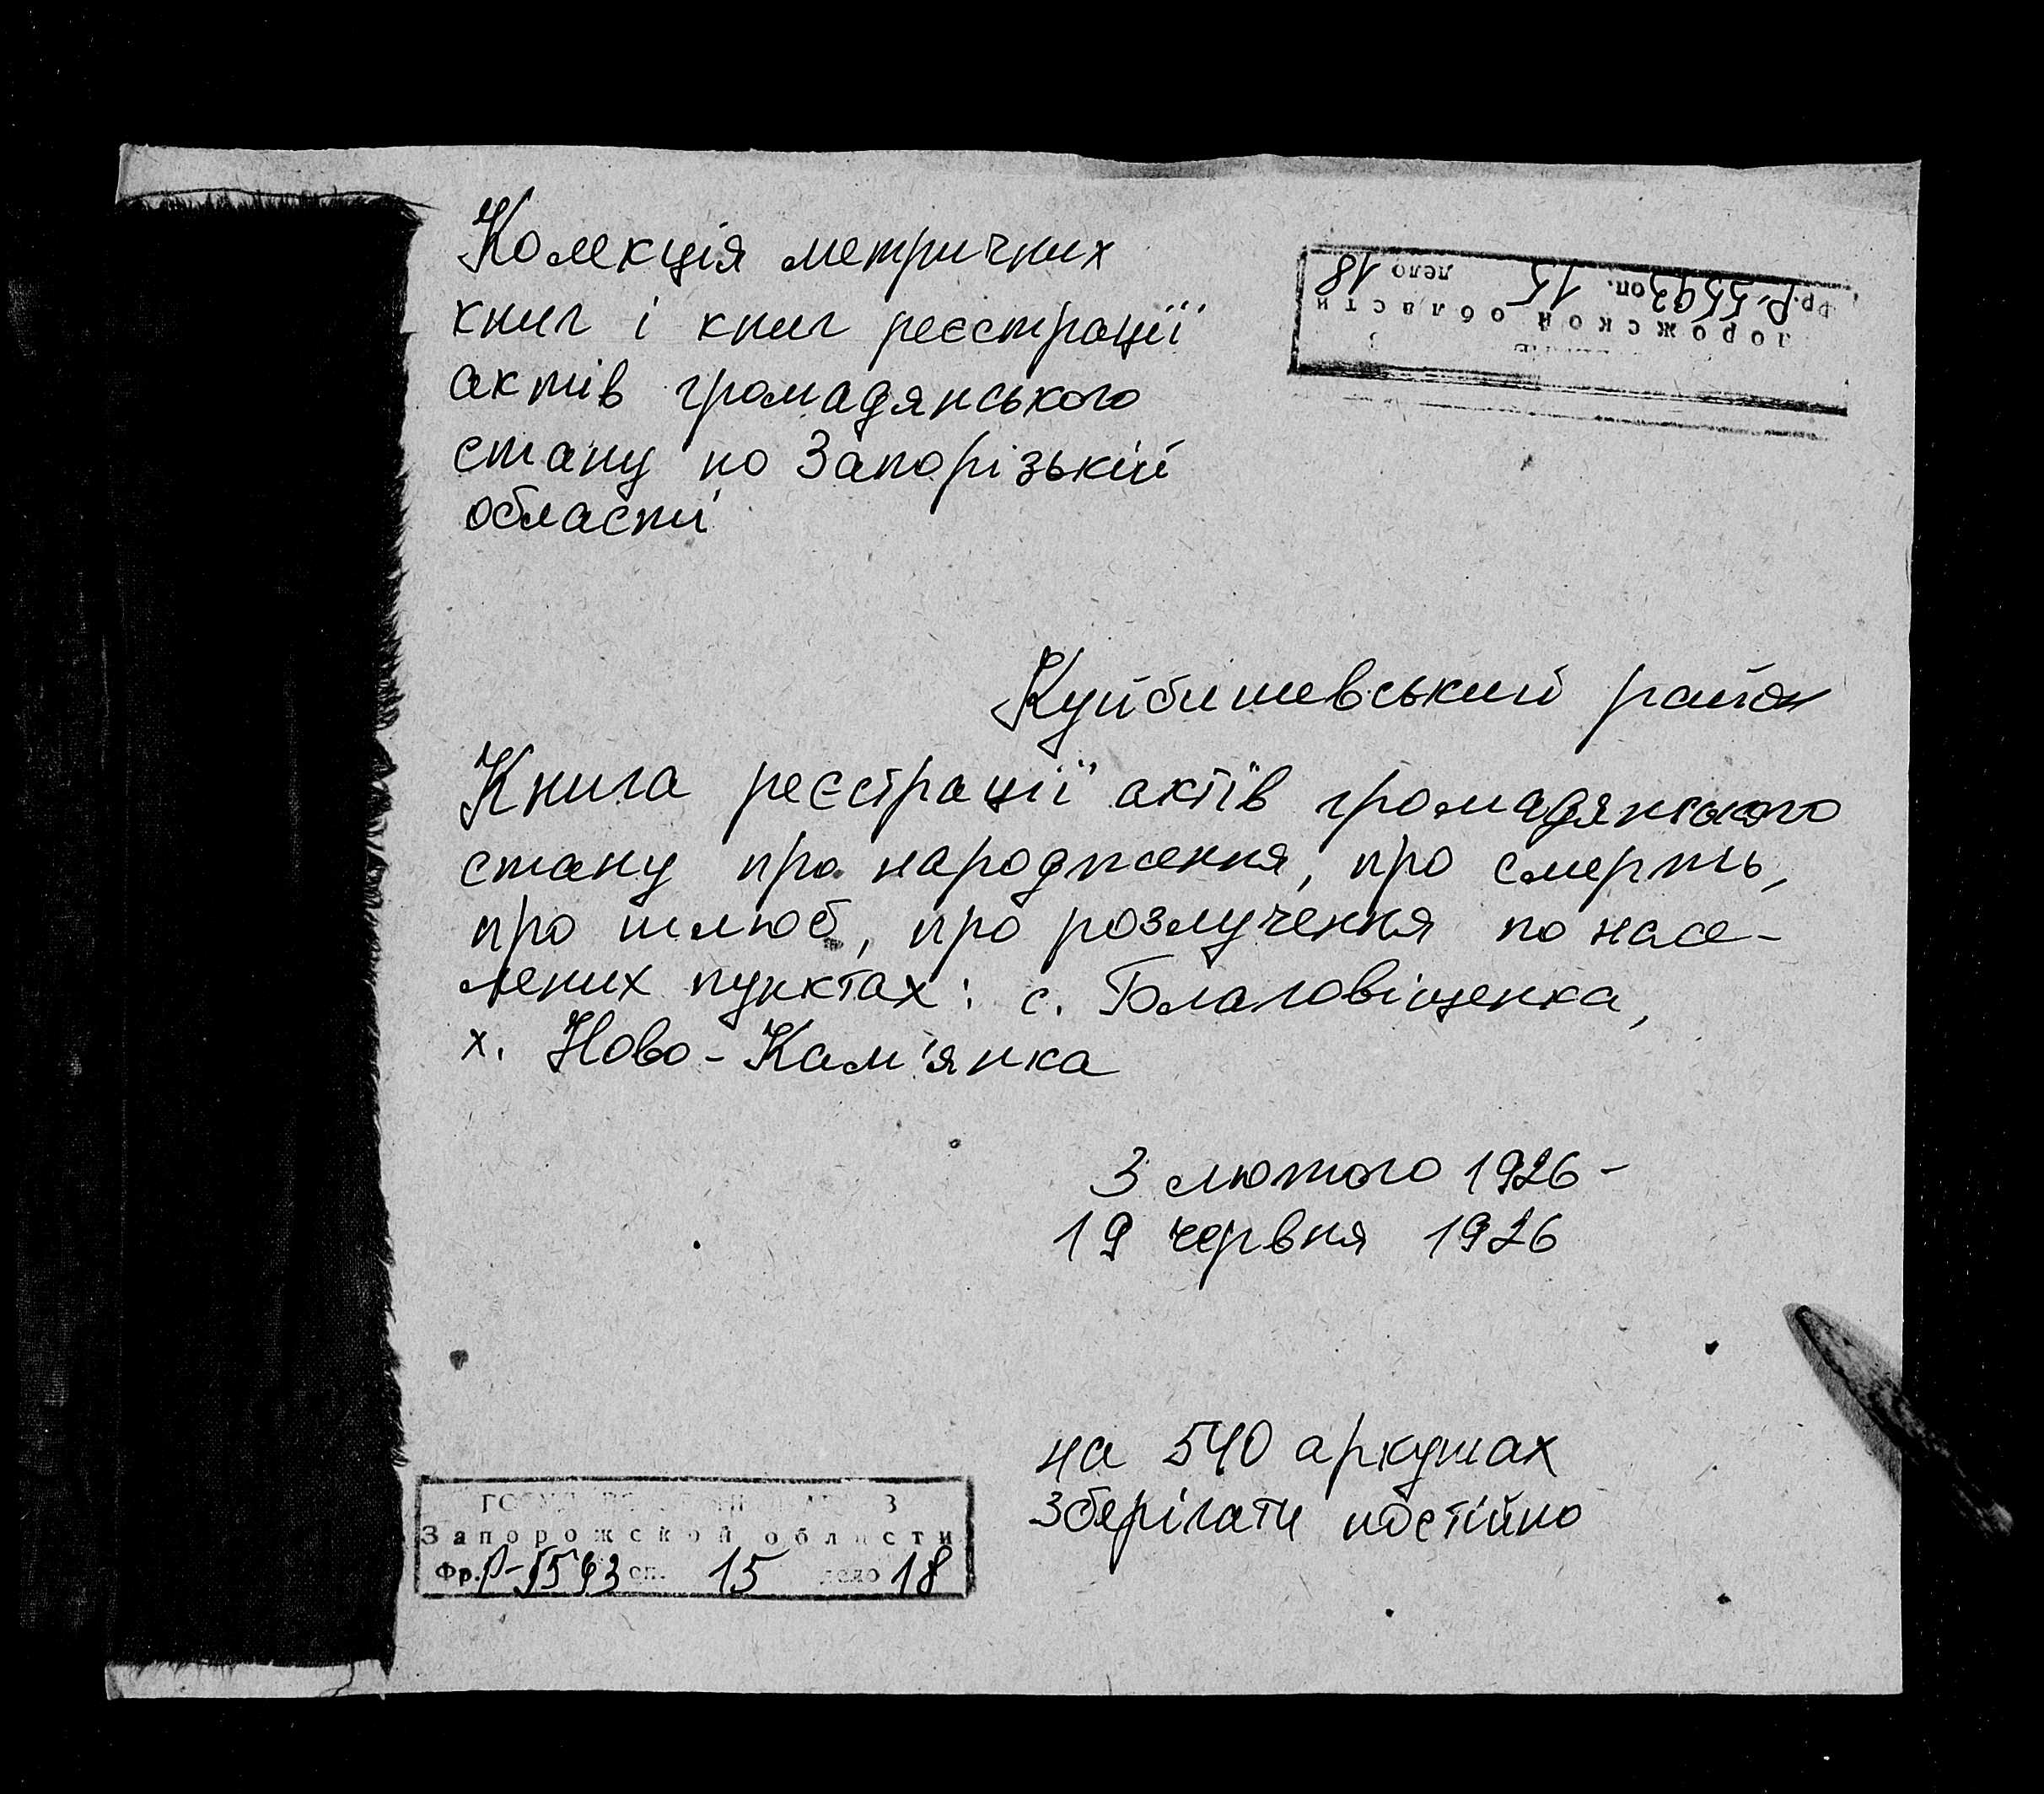 Колекція метричних
книг і книг реєстрації
актів громадянського
стану по Запорізькій
області
лорожской области
Фр. Р-5593 оп. 15 дело 18
Куйбишевський район
Книга реєстрації актів громадянського
стану про народження, про смерть,
про шлюб, про розлучення по насе-
лених пунктах: с. Благовіщенка,
х. Ново-Кам'янка
3 лютого 1926 -
19 червня 1926
на 540 аркушах
Зберігати постійно
Запорожской области
Фр. Р-5593 оп. 15 дело 18